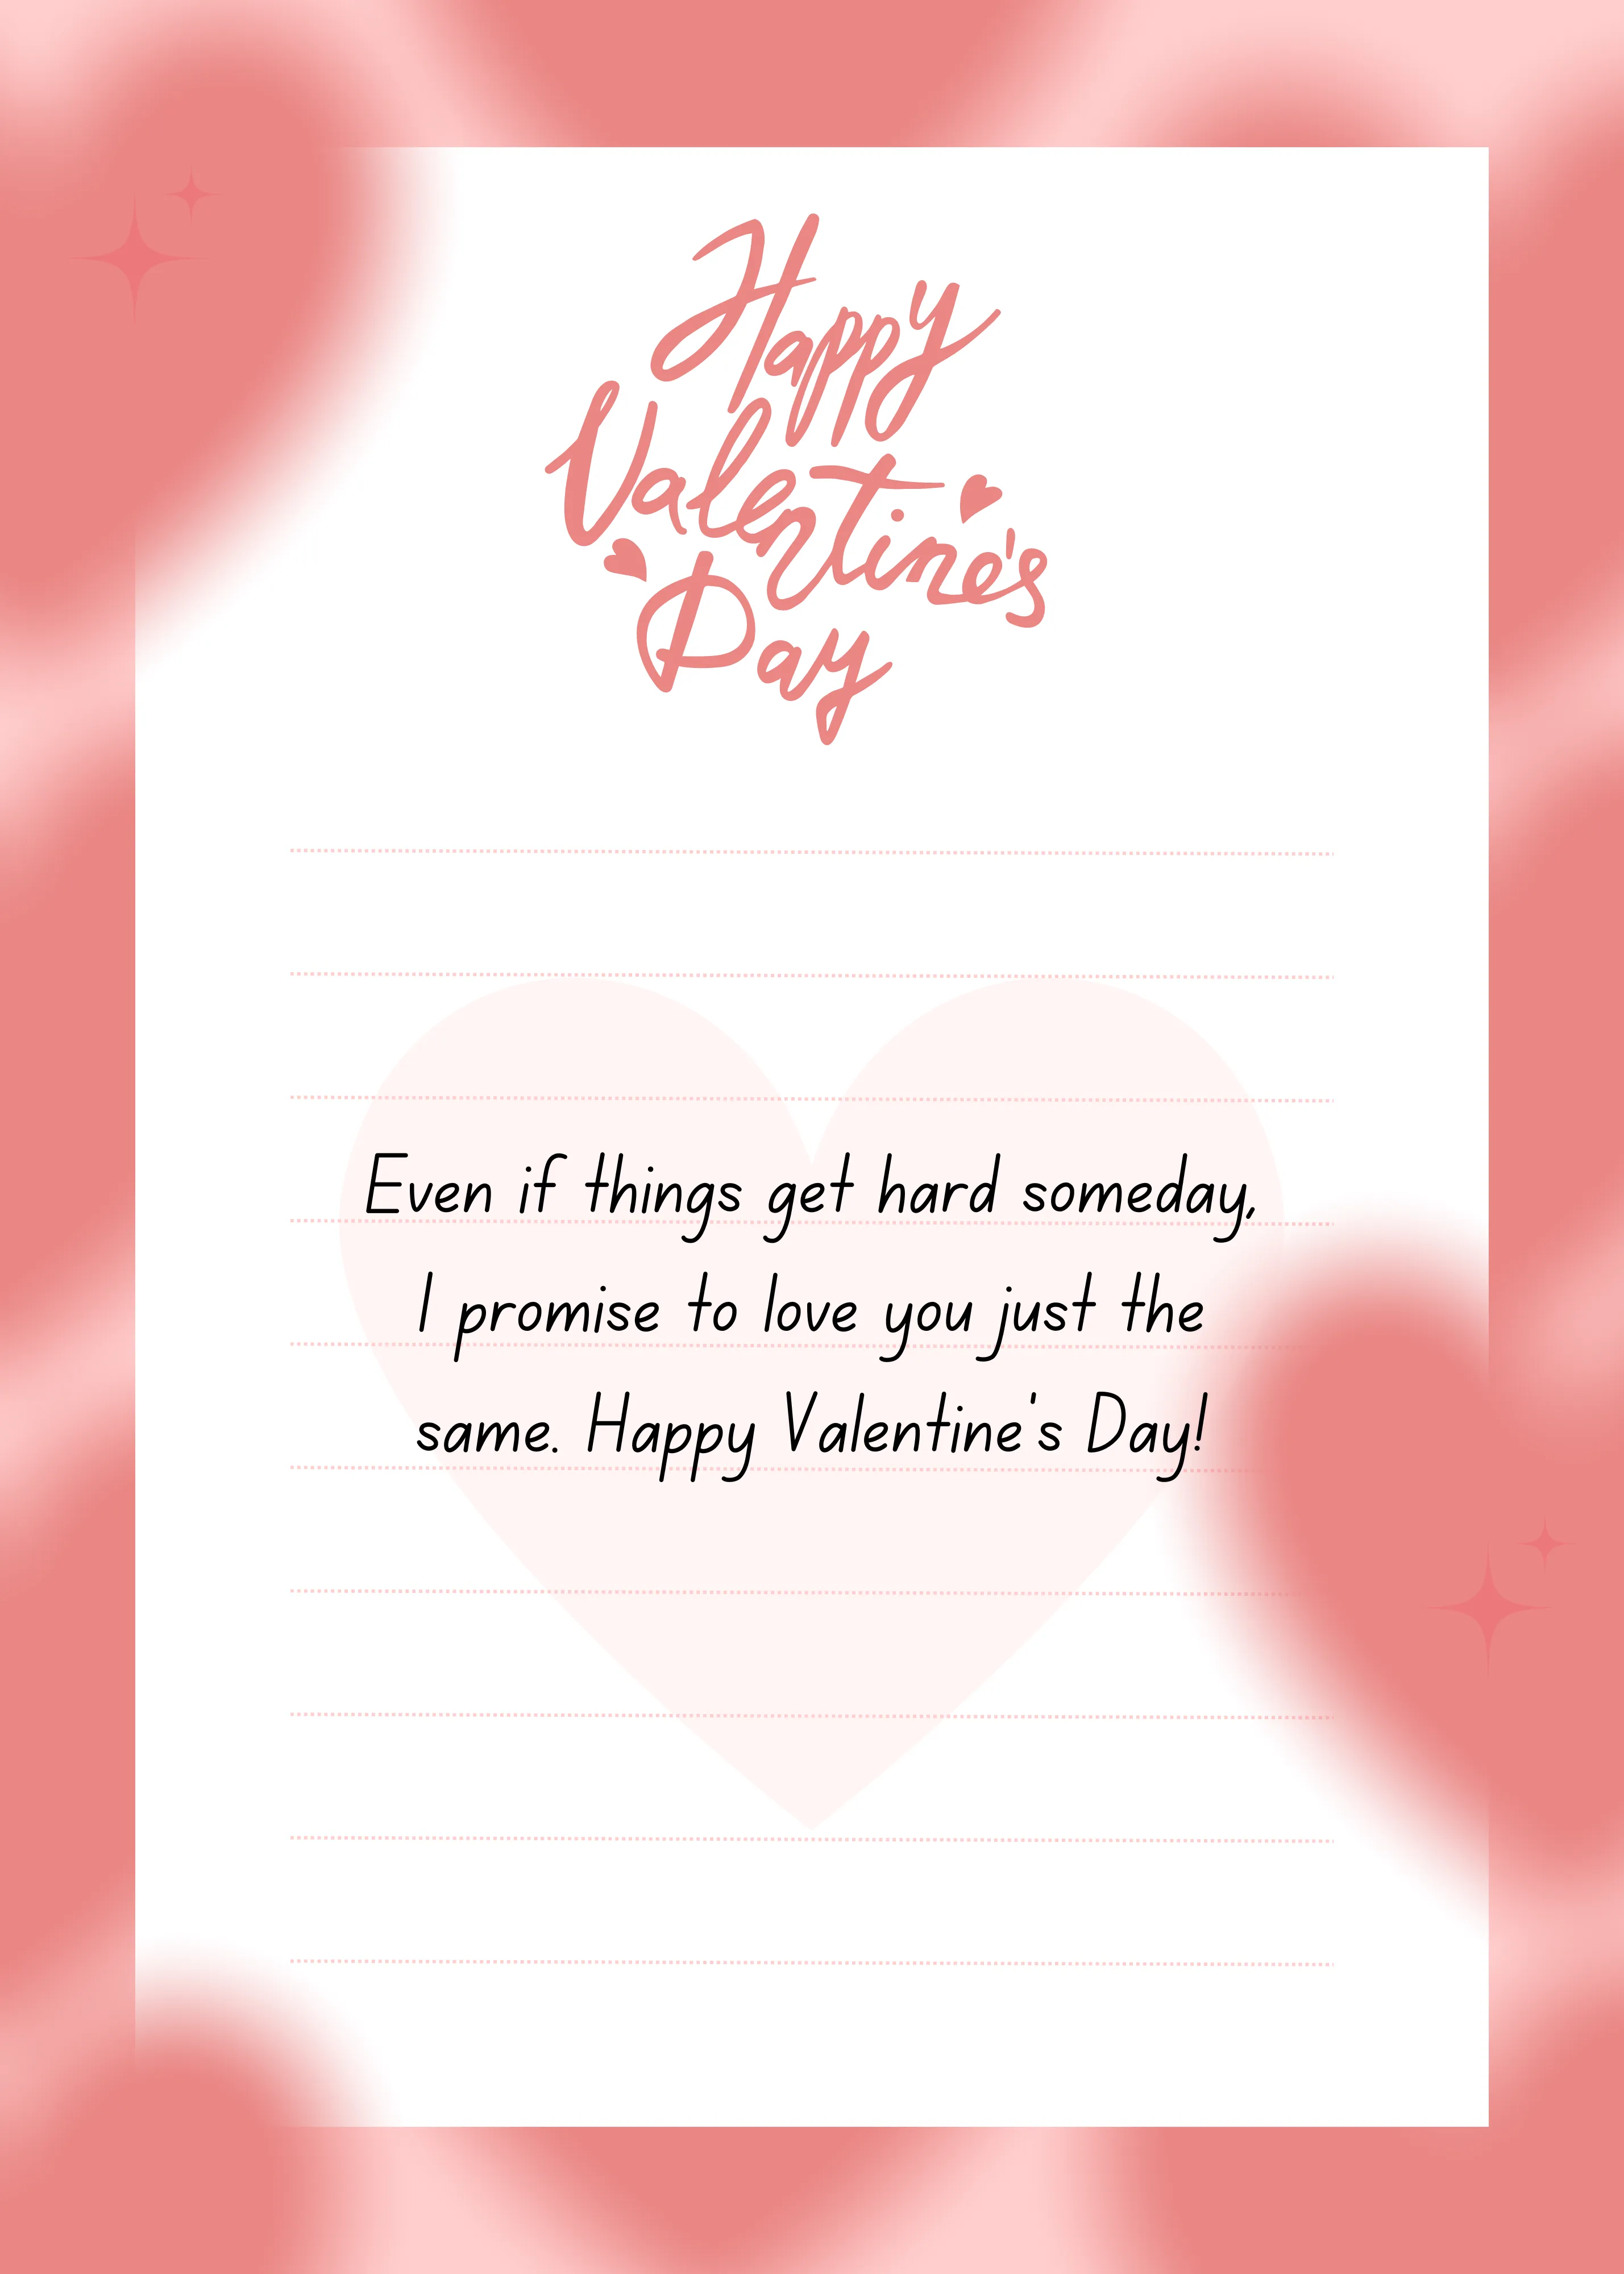 Happy
Valentine's
Day
Even if things get hard someday,
I promise to love you just the
same. Happy Valentine's Day!